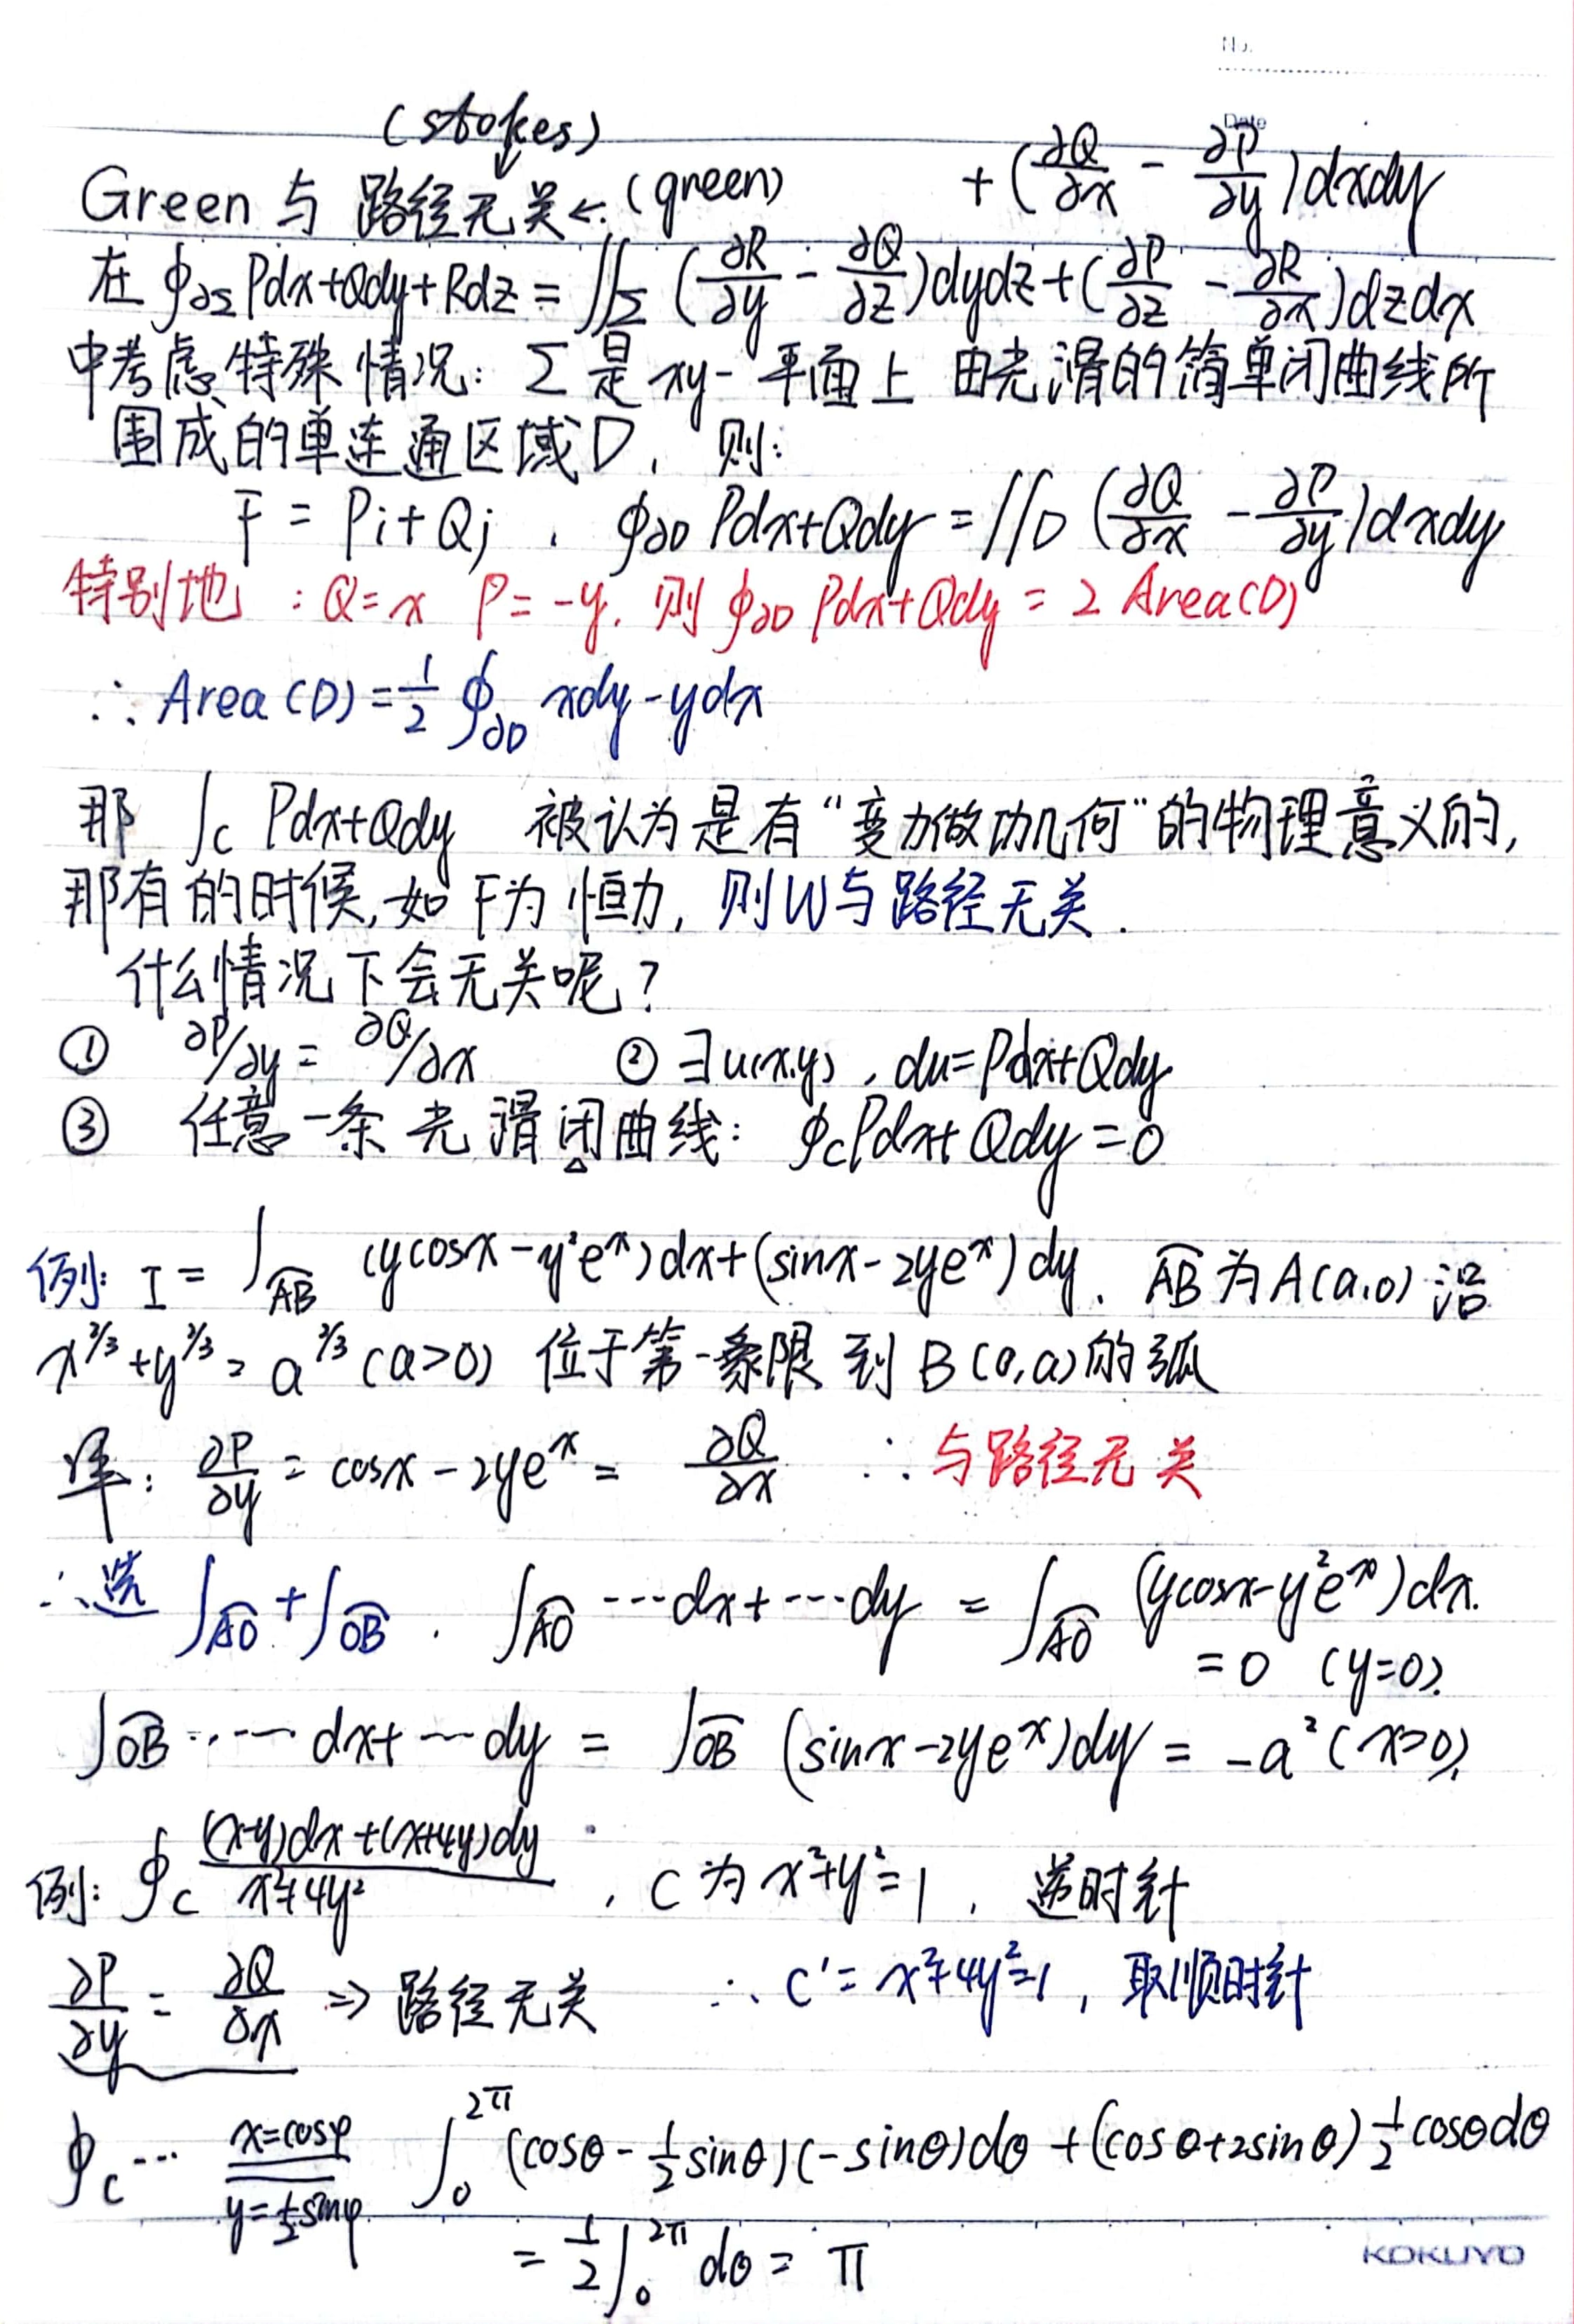 No.
Date
(stokes)
Green 与 路径无关 ← (green) + (∂Q/∂x - ∂P/∂y)dxdy
在 ∮∂Σ Pdx+Qdy+Rdz = ∬Σ (∂R/∂y - ∂Q/∂z)dydz + (∂P/∂z - ∂R/∂x)dzdx
中考虑特殊情况: Σ是xy-平面上 由光滑的简单闭曲线所
围成的单连通区域D, 则:
F = Pi+Qj , ∮∂D Pdx+Qdy = ∬D (∂Q/∂x - ∂P/∂y)dxdy
特别地 : Q=x P=-y. 则 ∮∂D Pdx+Qdy = 2 Area(D)
∴ Area(D) = 1/2 ∮∂D xdy-ydx
那 ∫C Pdx+Qdy 被认为是有“变力做功几何”的物理意义的,
那有的时候, 如 F为 恒力, 则W与路径无关.
什么情况下会无关呢?
① ∂P/∂y = ∂Q/∂x ② ∃u(x,y), du=Pdx+Qdy
③ 任意一条光滑闭曲线: ∮C Pdx+Qdy=0
例: I = ∫AB (ycosx-y²e^x)dx+(sinx-2ye^x)dy. AB为A(a,0)沿
x^2/3+y^2/3=a^2/3 (a>0) 位于第一象限到B(0,a)的弧
解: ∂P/∂y = cosx-2ye^x = ∂Q/∂x ∴与路径无关
∴选 ∫AO + ∫OB . ∫AO ···dx+···dy = ∫AO (ycosx-y²e^x)dx.
=0 (y=0).
∫OB ····· dx+···dy = ∫OB (sinx-2ye^x)dy = -a² (x=0).
例: ∮C (x-y)dx+(x+4y)dy / x²+4y² , C为x²+y²=1, 逆时针
∂P/∂y = ∂Q/∂x ⇒ 路径无关 ∴ C'= x²+4y²=1, 取顺时针
∮C ··· x=cosφ y=1/2sinφ ∫0^2π (cosθ-1/2sinθ)(-sinθ)dθ+(cosθ+2sinθ)1/2cosθdθ
= 1/2∫0^2π dθ = π
KOKUYO